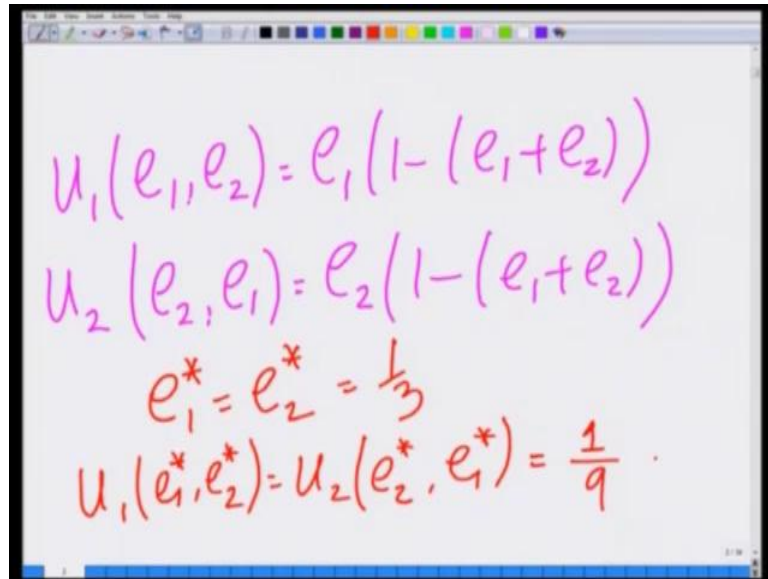 File Edit View Insert Actions Tools Help
u₁(e₁,e₂)=e₁(1-(e₁+e₂))
u₂(e₂,e₁)=e₂(1-(e₁+e₂))
e₁*=e₂*=1/3
u₁(e₁*,e₂*)=u₂(e₂*,e₁*)=1/9.